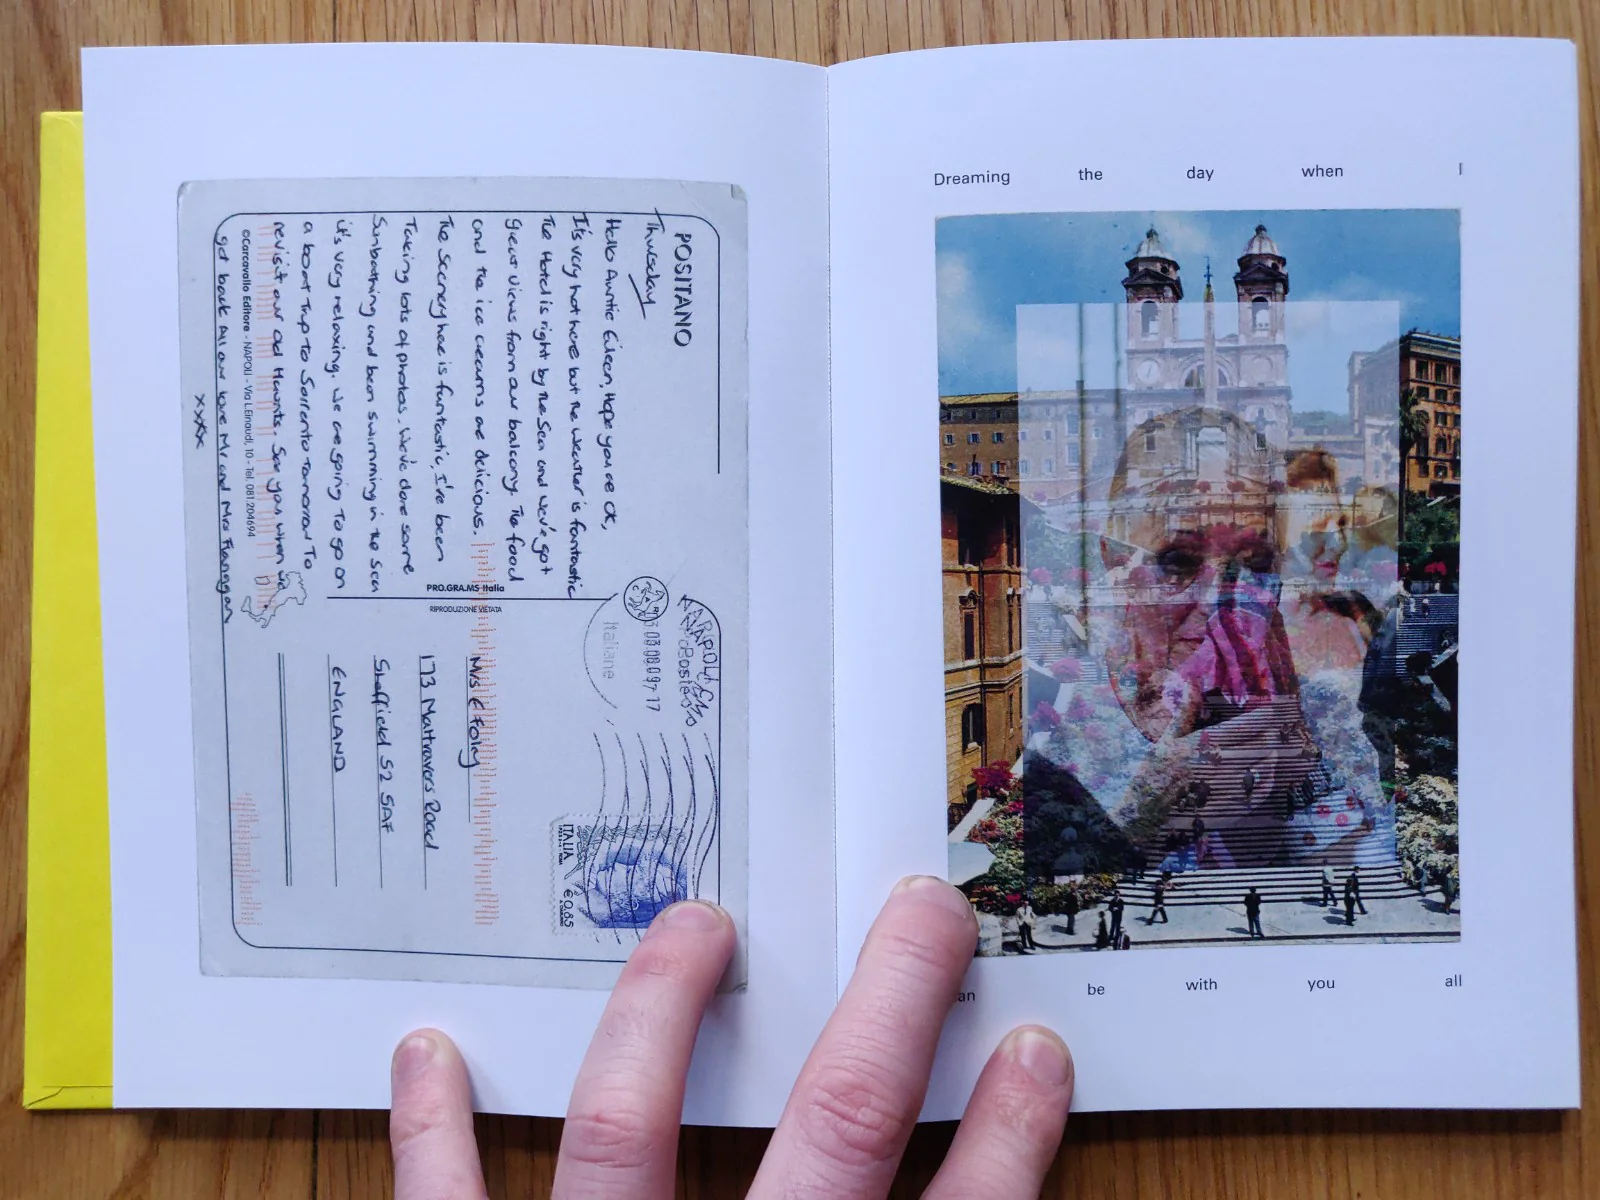 POSITANO
Thursday
Hello Auntie Eileen, Hope you are ok,
It's very hot here but the weather is fantastic
The Hotel is right by the Sea and we've got
great views from our balcony. The food
and the ice creams are delicious.
The Scenery here is fantastic, I've been
Taking lots of photos. We've done some
Sunbathing and been swimming in the sea
it's very relaxing. We are going to go on
a boat trip to Sorrento tomorrow To
revisit our old Haunts. See you when we
get back All our love Mr and Mrs Flanagan
xxxx
©Carcavallo Editore - NAPOLI - Via L.Einaudi, 10 - Tel. 081.204694
PRO.GRA.MS Italia
RIPRODUZIONE VIETATA
Italiane
Mrs E Foley
173 Mattravers Road
Sheffield S2 5AF
ENGLAND
ITALIA
€0,85
Dreaming the day when I
an be with you all